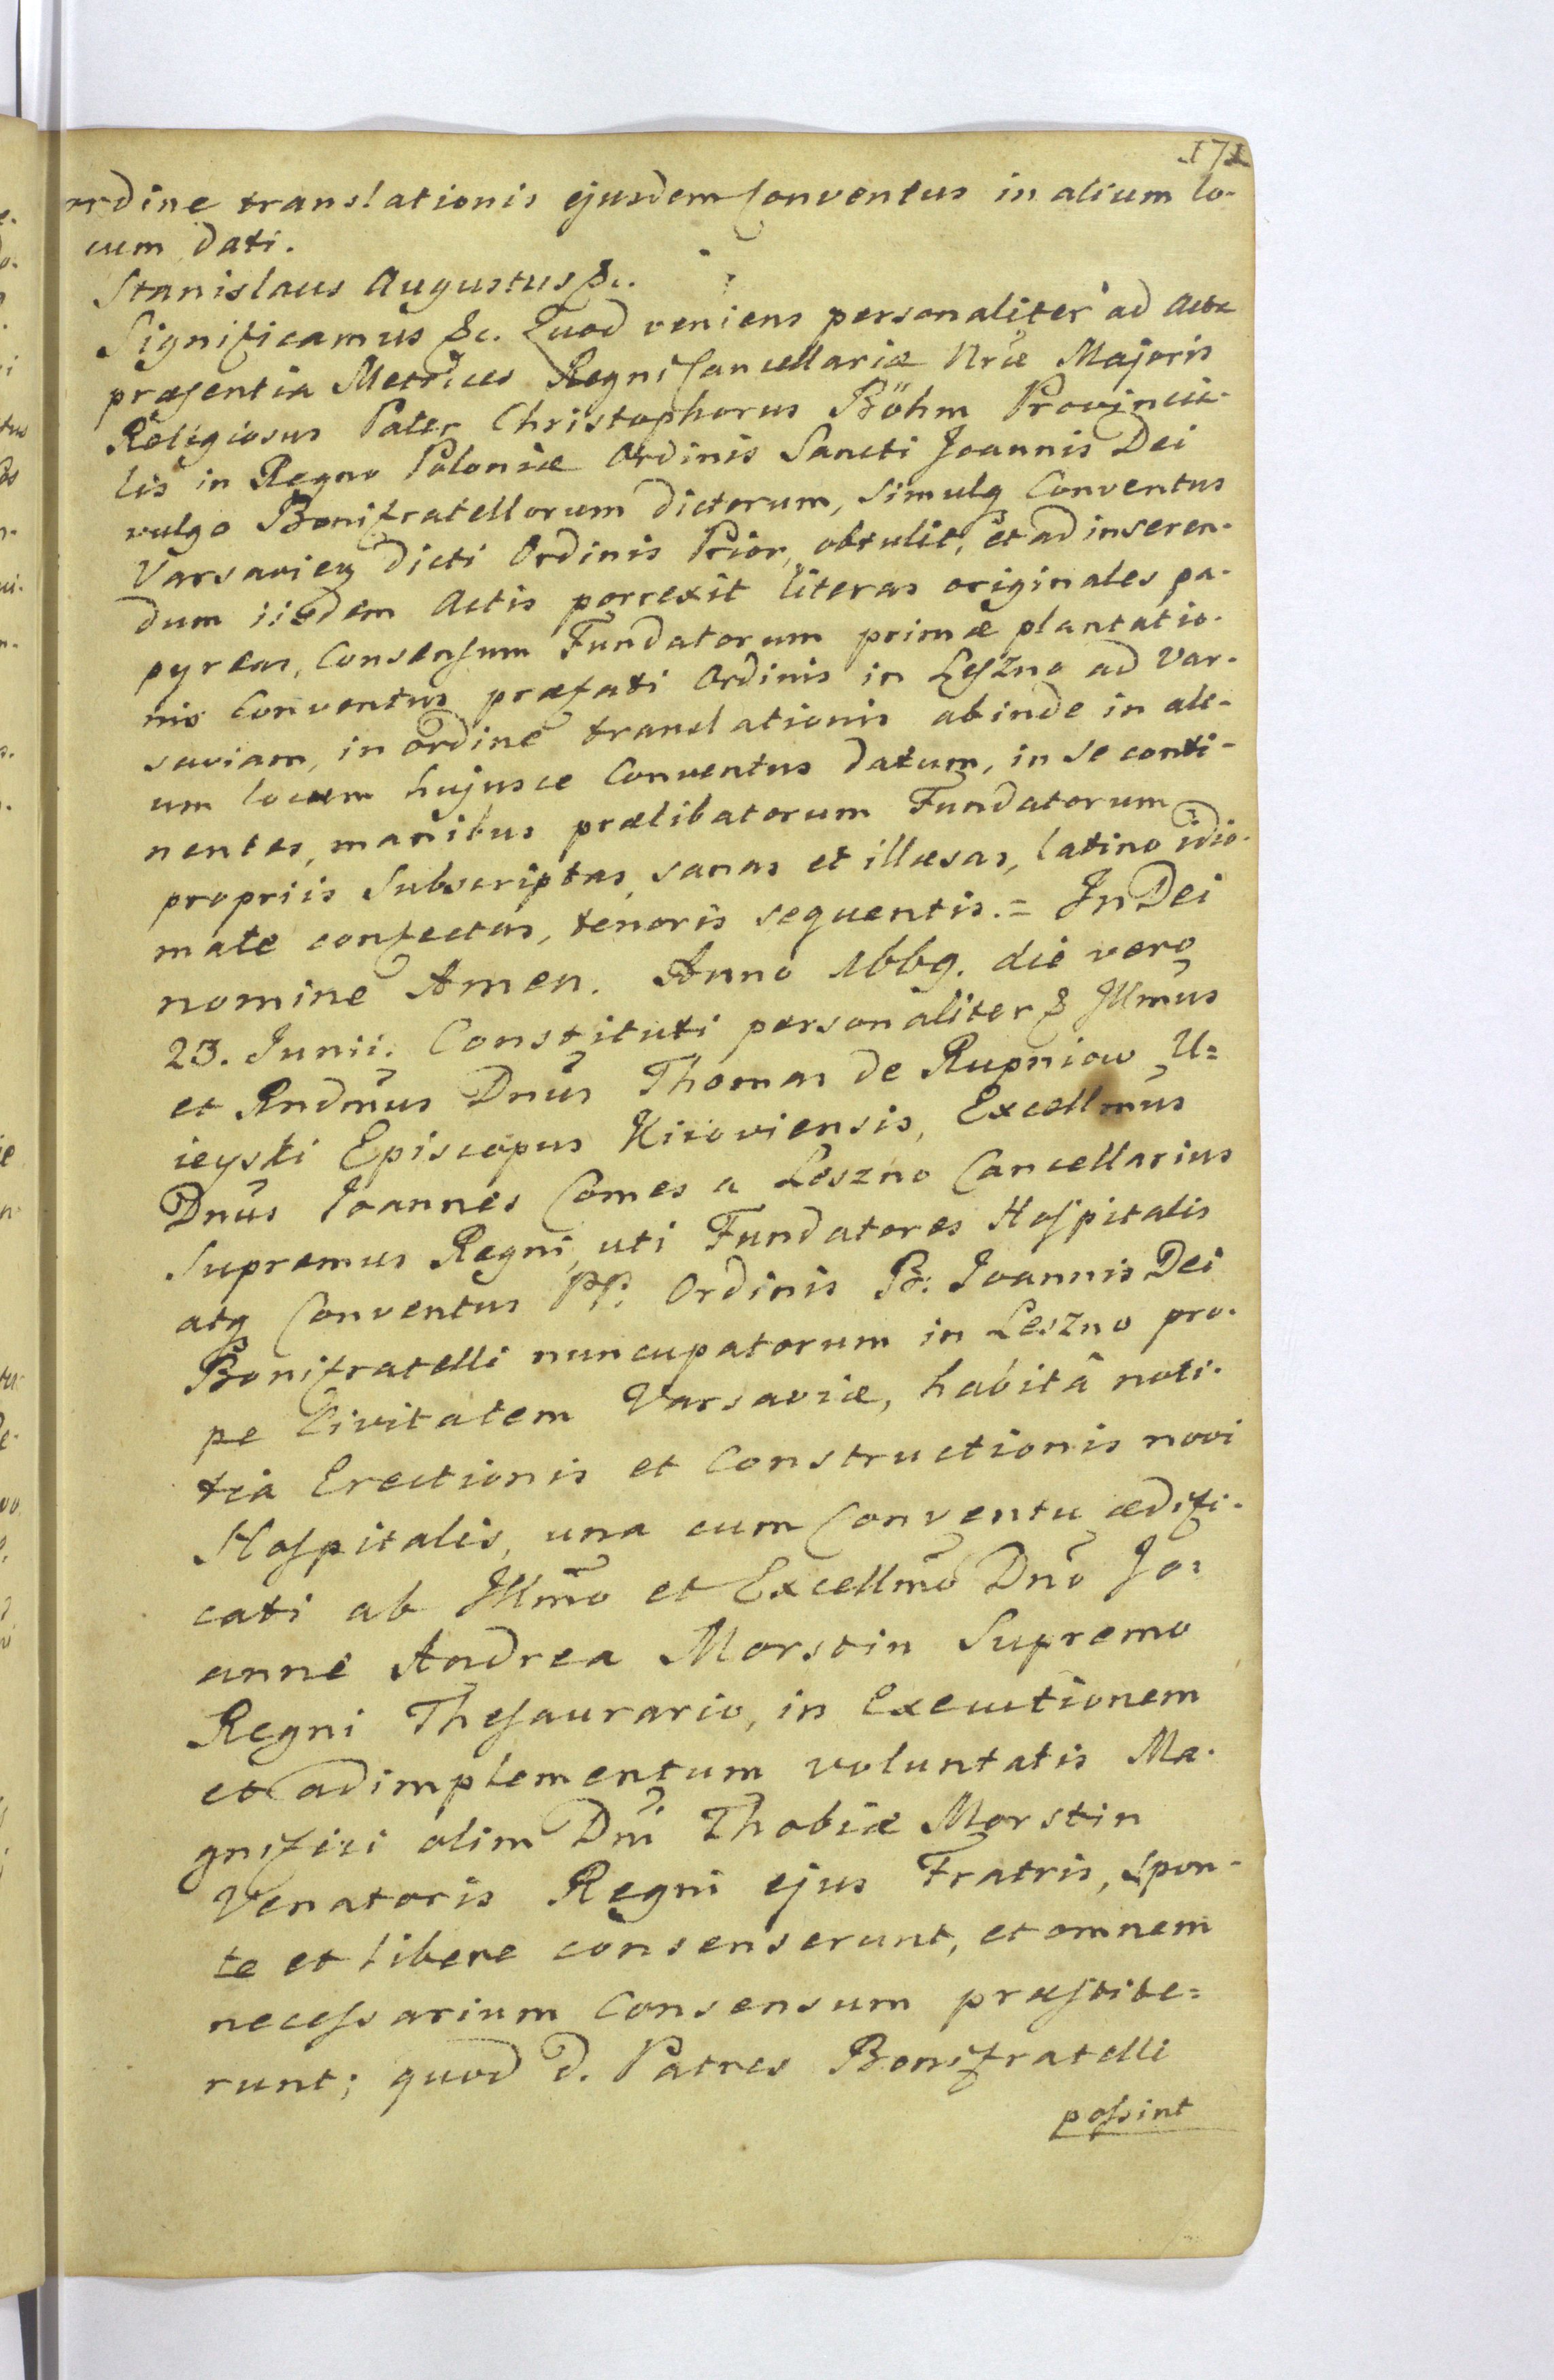 171
ordine translationis ejusdem Conventus in alium lo-
cum dati.
Stanislaus Augustus &c.
Significamus &c. Quod veniens personaliter ad Acta
præsentia Metrices Regni Cancellariæ Nræ Majoris
Religiosus Pater Christophorus Böhm Provincia-
lis in Regno Poloniæ Ordinis Sancti Joannis Dei
vulgo Bonifratellorum dictorum, simulq Conventus
Varsavien dicti Ordinis Prior, obtulit, et ad inseren-
dum iisdem Actis porrexit literas originales pa-
pyreas, Consensum Fundatorum primæ plantatio-
nis Conventus præfati Ordinis in Leszno ad Var-
saviam, in ordine translationis abinde in ali-
um locum hujusce Conventus datum, in se conti-
nentes, manibus prælibatorum Fundatorum
propriis subscriptas, sanas et illæsas, latino idio-
mate confectas, tenoris sequentis. = In Dei
nomine Amen. Anno 1669. die vero
23. Junii. Constituti personaliter & Illmus
et Rndmus Dnus Thomas de Rupniow U=
ieyski Episcopus Kiioviensis, Excellmus
Dnus Joannes Comes a Leszno Cancellarius
Supremus Regni, uti Fundatores Hospitalis
atq Conventus PP. Ordinis B: Joannis Dei
Bonifratelli nuncupatorum in Leszno pro-
pe Civitatem Varsaviæ, habitâ noti-
tia Erectionis et Constructionis novi
Hospitalis, una cum Conventu ædifi-
cati ab Illmo et Excellmo Dno Jo=
anne Andrea Morstin Supremo
Regni Thesaurario, in Executionem
et adimplementum voluntatis Ma-
gnifici olim Dni Thobiæ Morstin
Venatoris Regni ejus Fratris, spon-
te et libere consenserunt, et omnem
necessarium Consensum præstite=
runt; quod d. Patres Bonifratelli
possint